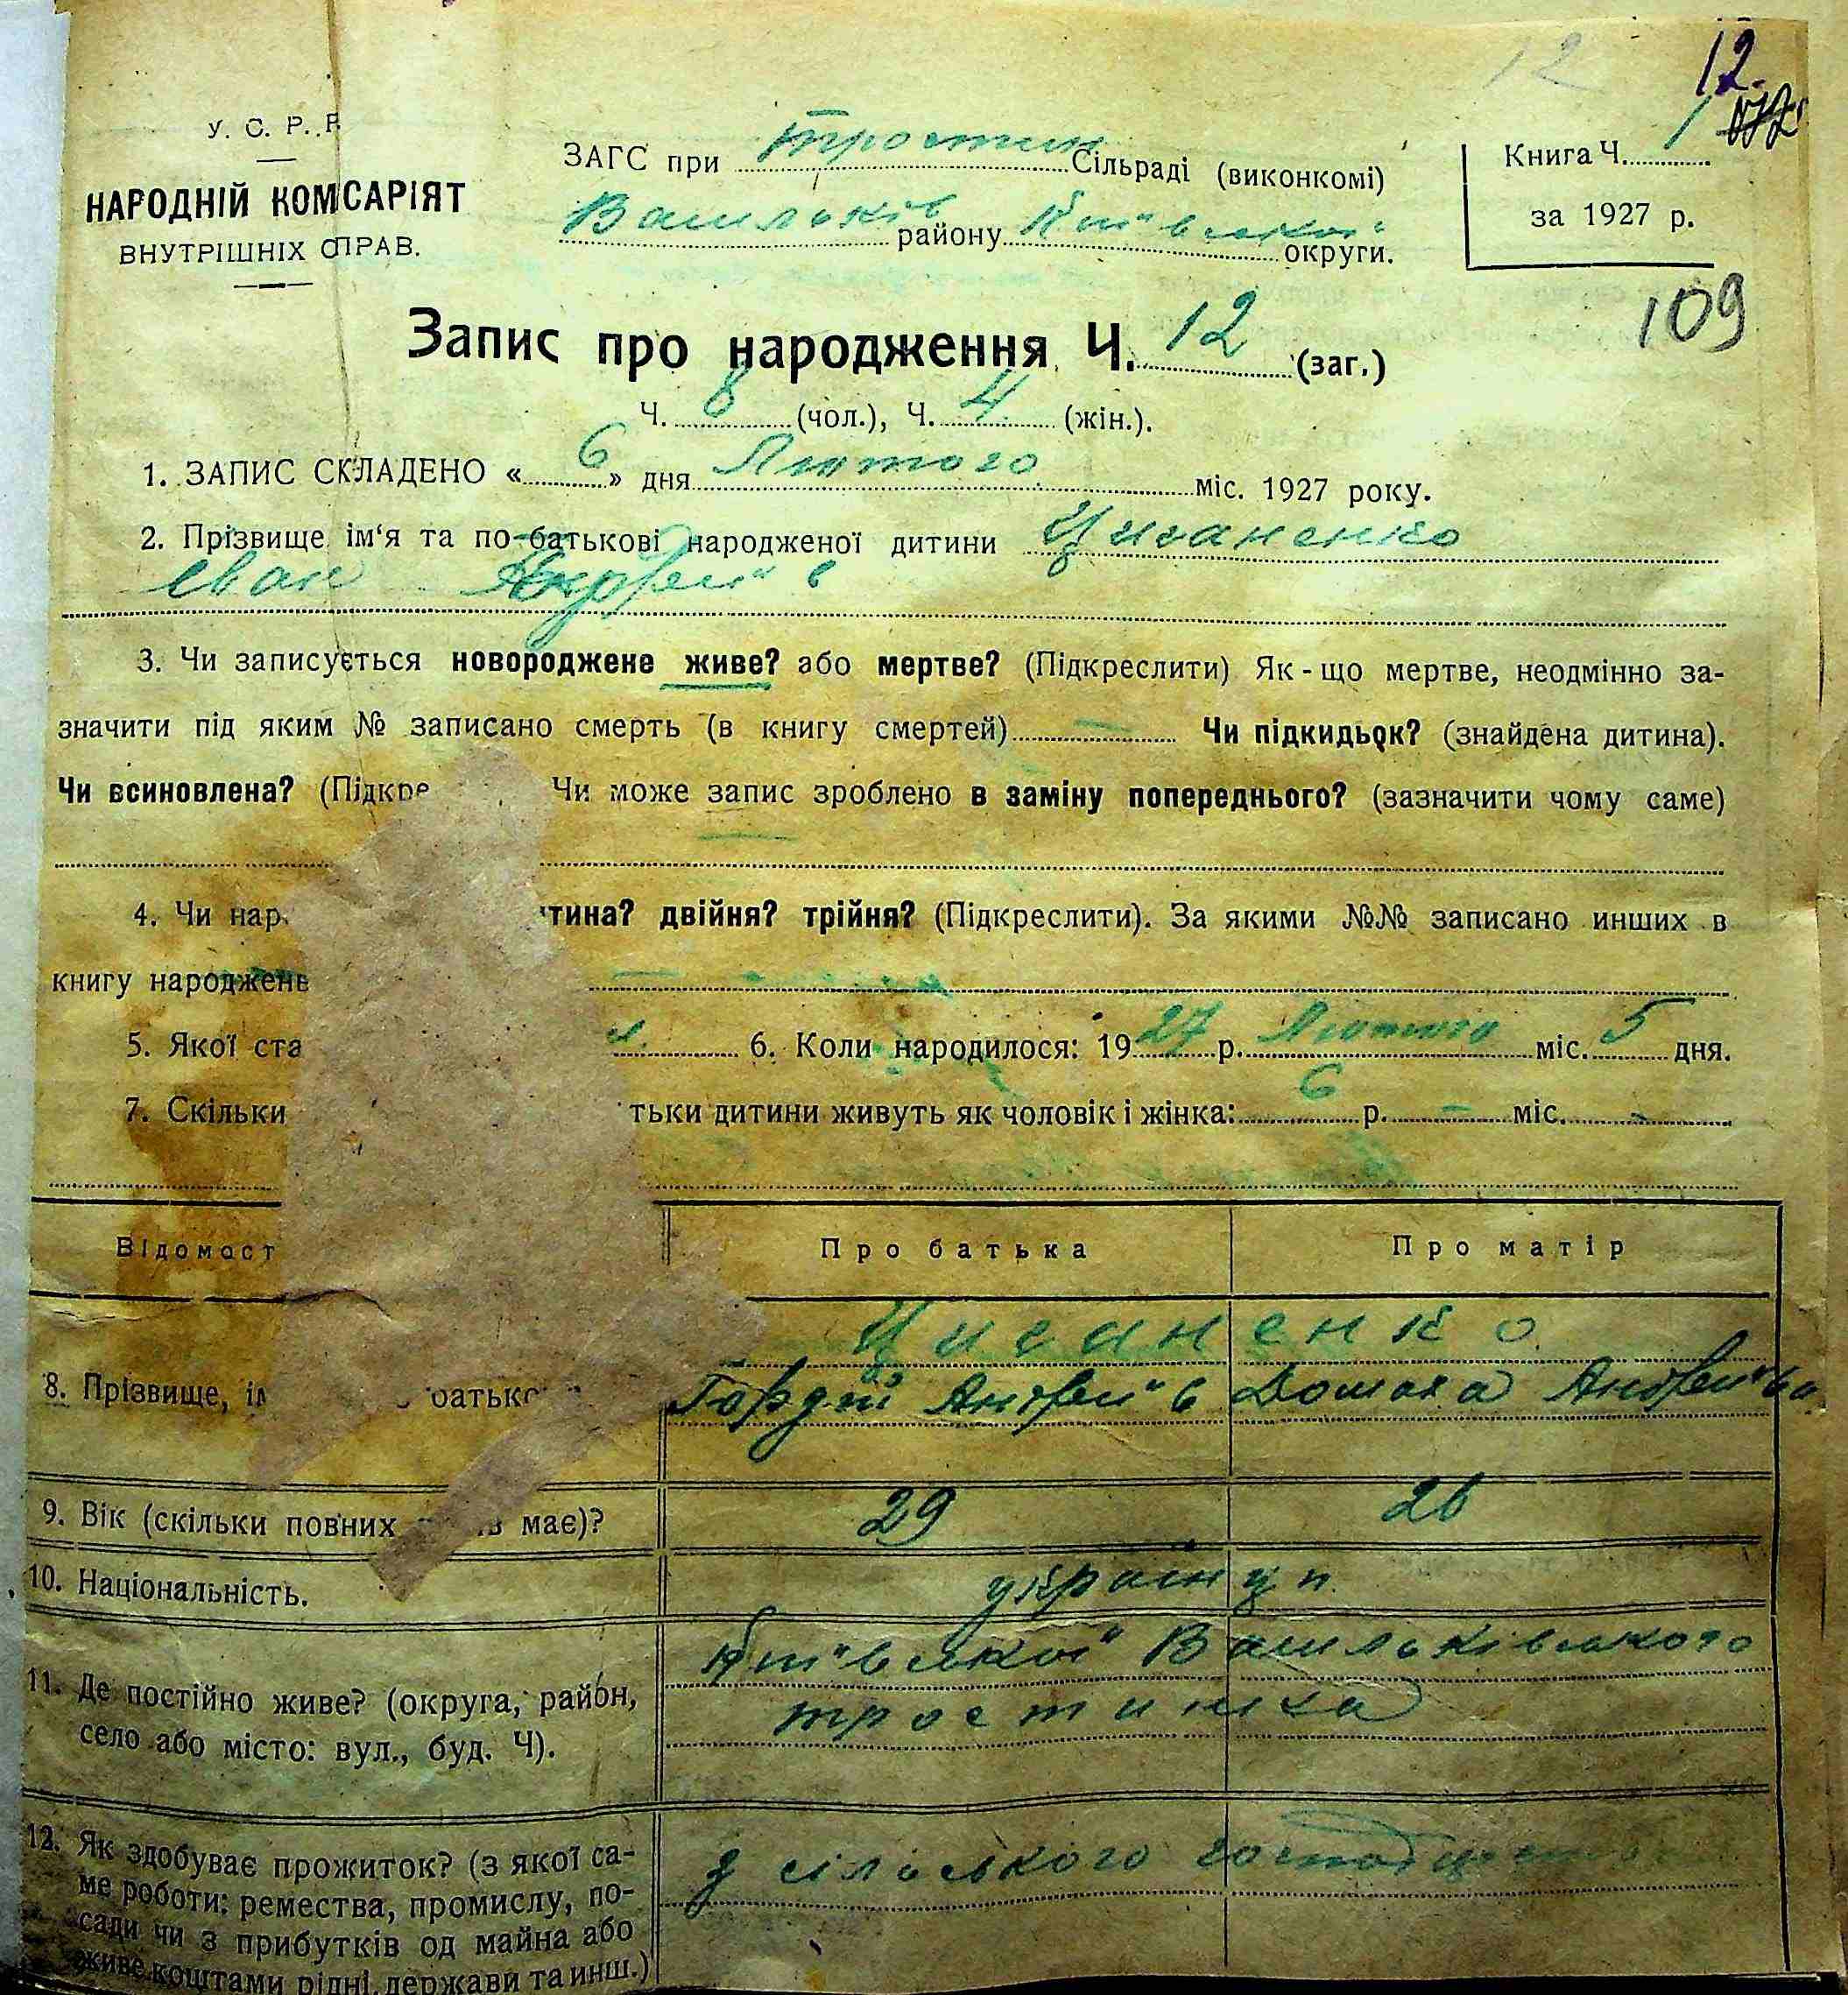 12
12.
У. С. Р. Р.
НАРОДНІЙ КОМІСАРІЯТ
ВНУТРІШНІХ СПРАВ.
ЗАГС при Тростин Сільраді (виконкомі)
Васильків району Київської округи.
Книга Ч. 1
за 1927 р.
109
Запис про народження Ч. 12 (заг.)
Ч. 8 (чол.), Ч. 4 (жін.).
1. ЗАПИС СКЛАДЕНО « 6 » дня Лютого міс. 1927 року.
2. Прізвище ім'я та по-батькові народженої дитини Циганенко
Іван
3. Чи записується новороджене живе? або мертве? (Підкреслити) Як-що мертве, неодмінно за-
значити під яким № записано смерть (в книгу смертей) — Чи підкидьок? (знайдена дитина).
Чи всиновлена? (Підкре Чи може запис зроблено в заміну попереднього? (зазначити чому саме)
4. Чи нар тина? двійня? трійня? (Підкреслити). За якими №№ записано инших в
книгу народжене
5. Якої ста ч. 6. Коли народилося: 19 27 р. Лютого міс. 5 дня.
7. Скільки тьки дитини живуть як чоловік і жінка: 6 р. — міс. —
Відомост Про батька Про матір
Циганенко
8. Прізвище, ім батько Гордій Андрей"в Домаха Андрей"вна
9. Вік (скільки повних ів має)? 29 26
10. Національність. українці
11. Де постійно живе? (округа, район,
село або місто: вул., буд. Ч).
Киї"вської Васильківського
тростинка
12. Як здобуває прожиток? (з якої са-
ме роботи: ремества, промислу, по-
сади чи з прибутків од майна або
живе коштами рідні, держави та инш.)
з сільського